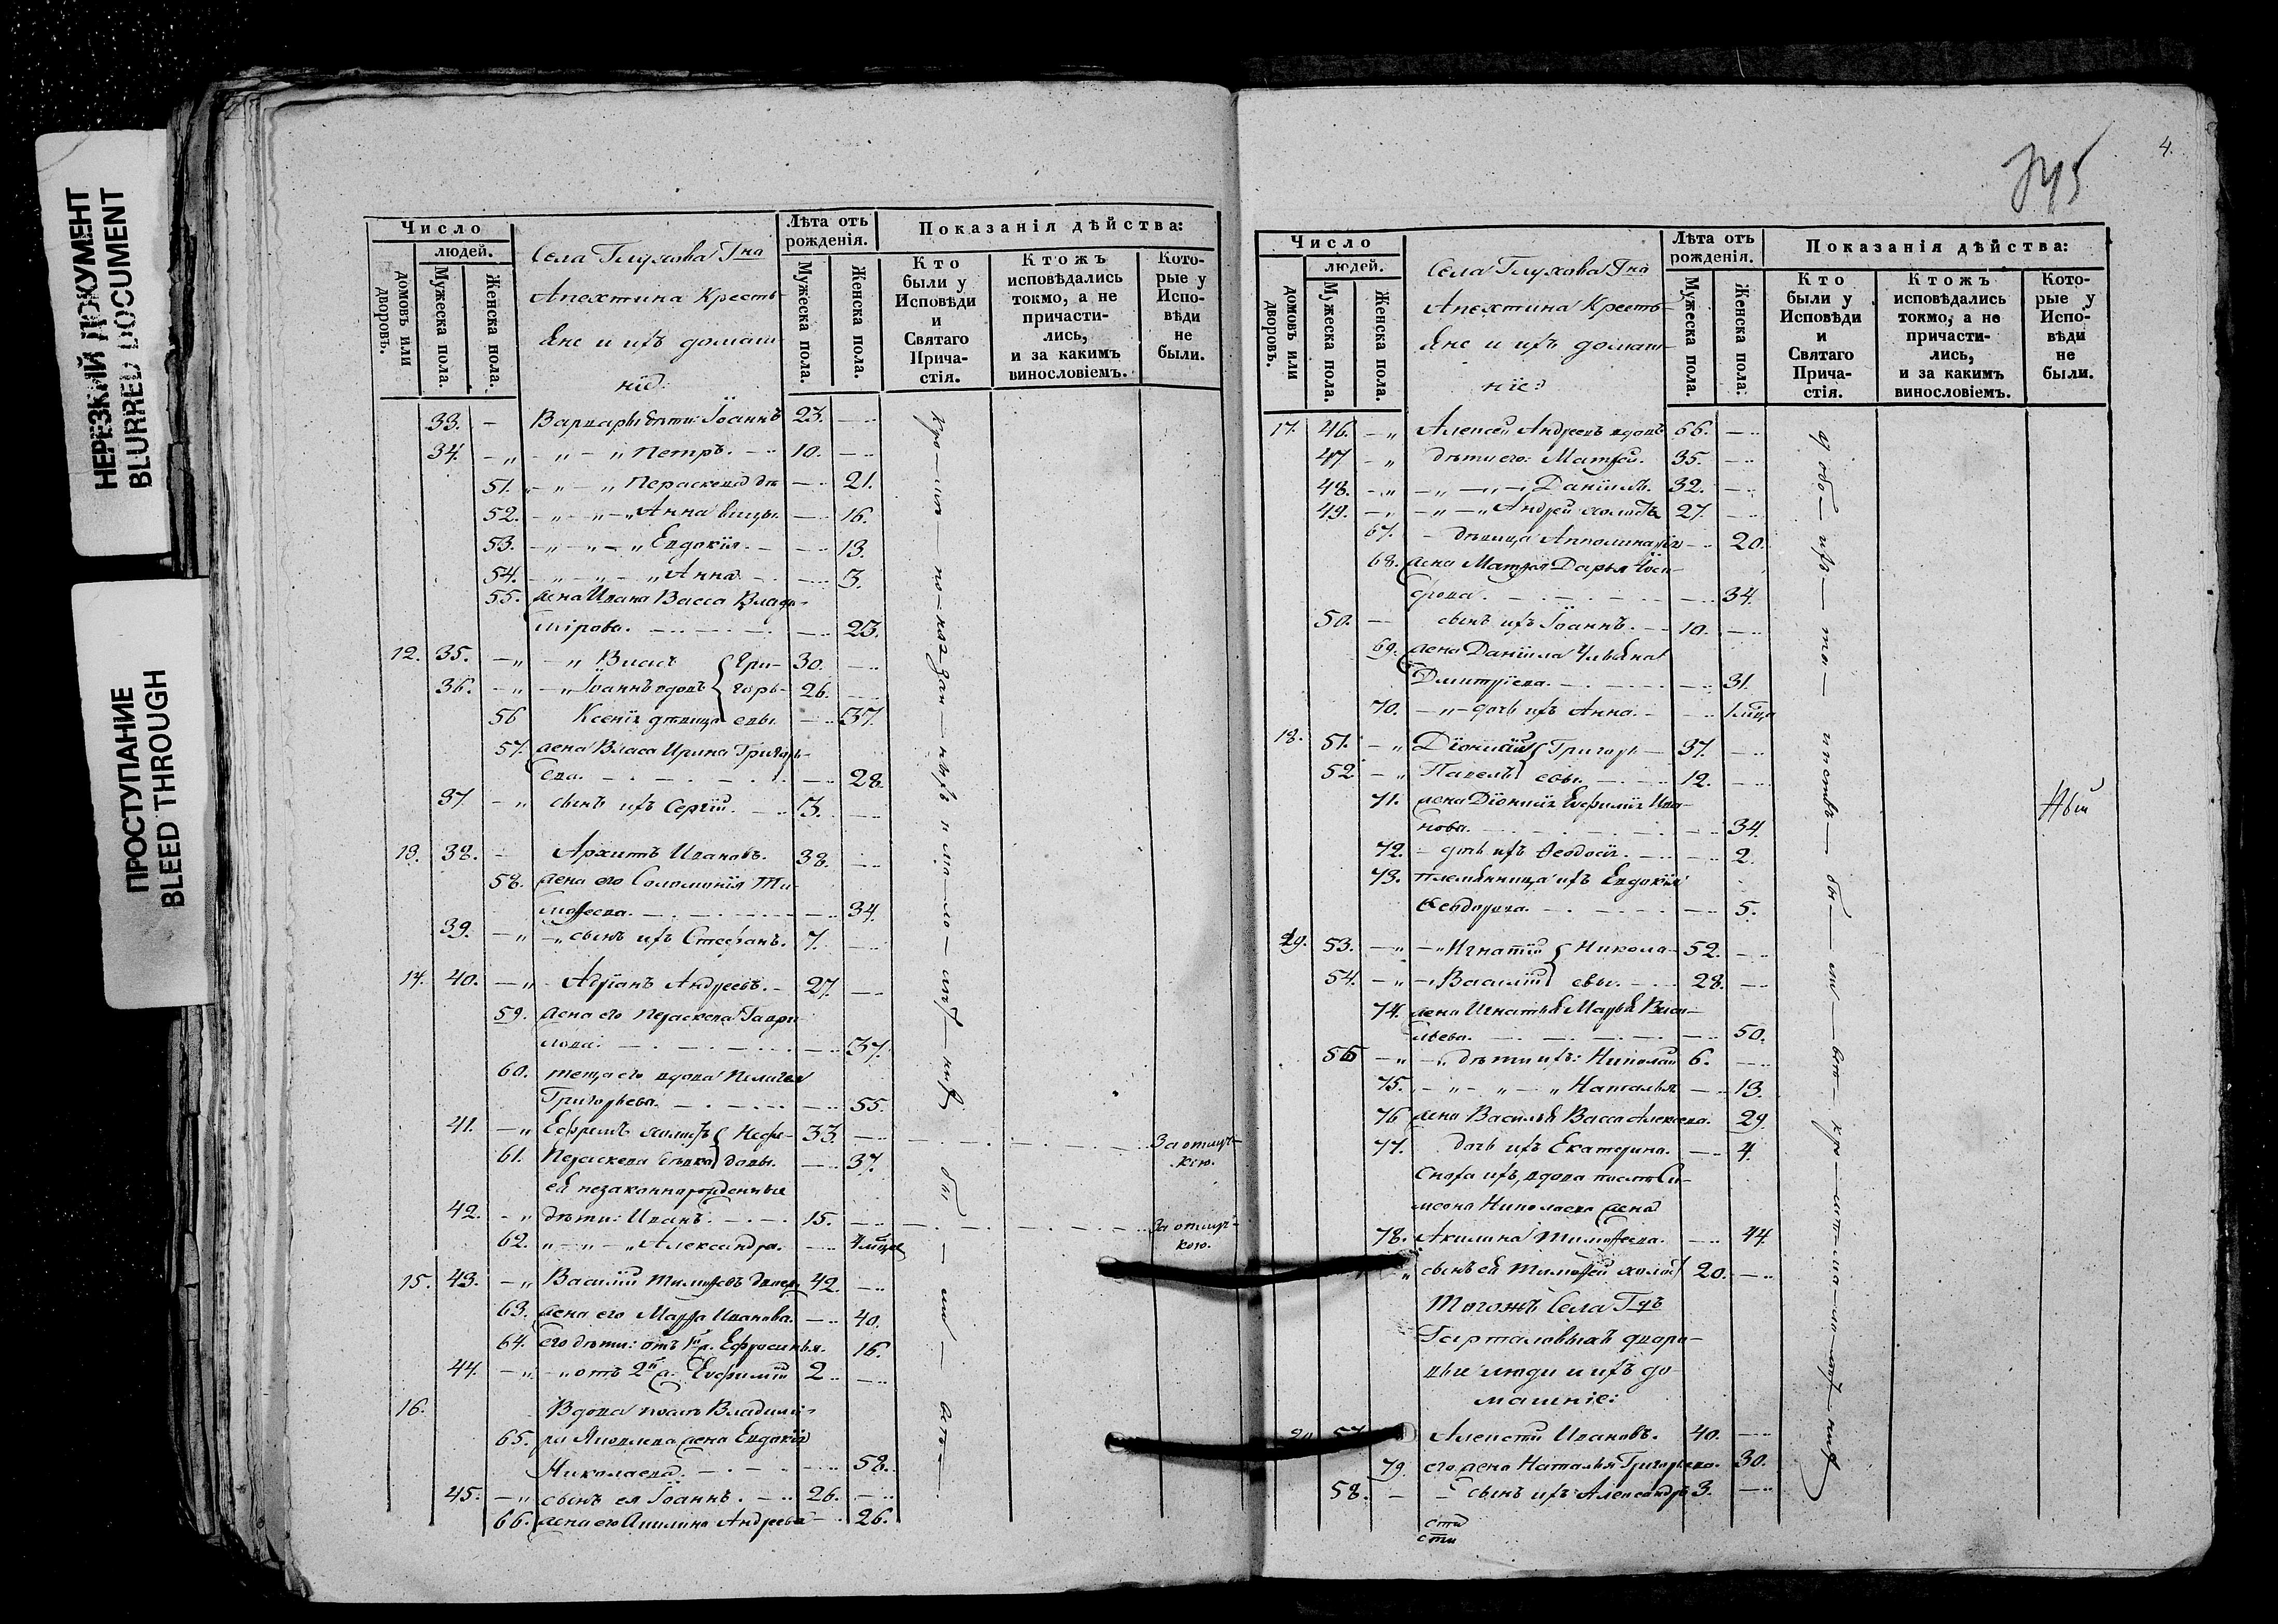 НЕРЕЗКИЙ ДОКУМЕНТ
BLURRED DOCUMENT
ПРОСТУПАНИЕ
BLEED THROUGH
Число
людей.
домовъ или дворовъ.
Мужеска пола.
Женска пола.
Села Глухова Гна
Апехтина Кресть-
яне и ихъ домаш-
нiе:
Лѣта отъ рожденiя.
Мужеска пола.
Женска пола.
Показанiя дѣйства:
Кто были у Исповѣди и Святаго Прича-стiя.
Ктожъ исповѣдались токмо, а не причасти-лись, и за какимъ винословiемъ.
Кото-рые у Испо-вѣди не были.
33. - Варвары дѣти: Іоаннъ 23.
34. Петръ. 10.
51. Параскева дѣ 21.
52. Анна вицы. 16.
53. Евдокiя. 13.
54. Анна. 3.
55. жена Ивана Васса Влади-
мiрова. 23.
12. 35. Власъ Гри- 30.
36. Іоаннъ вдовъ горь- 26.
56 Ксенiя дѣвица евы. 37.
57. жена Власа Ирина Григорь-
ева. 28.
37. сынъ ихъ Сергiй. 3.
13. 38. Архипъ Ивановъ. 38.
58. жена его Соломонiя Ти-
моѳеева. 34.
39. сынъ ихъ Стефанъ. 7.
14. 40. Адрiанъ Андреевъ. 27.
59. жена его Параскева Гаври-
лова. 37.
60. теща его вдова Пелагея
Григорьева. 55.
41. Ефремъ холостъ Нефе- 33. За отлуч-
кою.
61. Параскева дѣвка довы. 37.
ея незаконнорожденные
42. дѣти: Иванъ. 15. За отлуч-
кою.
62. Александра. 4 мѣца
15. 43. Василiй Тимоѳеевъ 42.
63. жена его Марѳа Иванова. 40.
64. его дѣти: отъ 1й ж. Ефросинья. 16.
44. отъ 2й ж. Евфимiй 2
16. Вдова послѣ Владимi-
65. ра Яковлева жена Евдокiя
Николаева. 58.
45. сынъ ея Іоаннъ. 26.
66. жена его Акилина Андреева 26.
4.
Число
людей.
домовъ или дворовъ.
Мужеска пола.
Женска пола.
Села Глухова Гна
Апехтина Кресть-
яне и ихъ домаш-
нiе:
Лѣта отъ рожденiя.
Мужеска пола.
Женска пола.
Показанiя дѣйства:
Кто были у Исповѣди и Святаго Прича-стiя.
Ктожъ исповѣдались токмо, а не причасти-лись, и за какимъ винословiемъ.
Кото-рые у Испо-вѣди не были.
17. 46. Алексей Андреевъ вдовъ 66.
47 дѣти его: Матѳей. 35.
48. Данiилъ. 32.
49. Андрей холостъ 27.
67. дѣвица Апполинарiя 20.
68. жена Матѳея Дарья Іоси-
фова. 34.
50. сынъ ихъ Іоаннъ. 10.
69. жена Данiила Ульяна
Димитрiева. 31.
70. дочь ихъ Анна. 1 мѣца
18. 51. Дiонисiй Григорь- 37.
52 Павелъ евы. 12.
71. жена Дiонисiя Евфимiя Ива-
нова. 34.
72. дочь ихъ Ѳеодосiя. 2.
73. племянница ихъ Евдокiя
Ѳеодорова. 5.
19. 53. Игнатiй Никола- 52.
54. Василiй евы. 28.
74. жена Игнатья Марья Васи-
льева. 50.
55 дѣти ихъ: Николай 6.
75. Наталья 13.
76 жена Василья Васса Алексеева. 29.
77. дочь ихъ Екатерина. 4.
Сноха ихъ, вдова послѣ Си-
меона Николаева жена
78. Акилина Тимоѳеева. 44.
сынъ ея Тимоѳей холост 20.
Тогожъ Села Гдъ
дворо-
вые люди и ихъ до
машнiе:
20 57 Алексѣй Ивановъ. 40.
79. его жена Наталья Григорьева. 30.
58. сынъ ихъ Александръ 3.